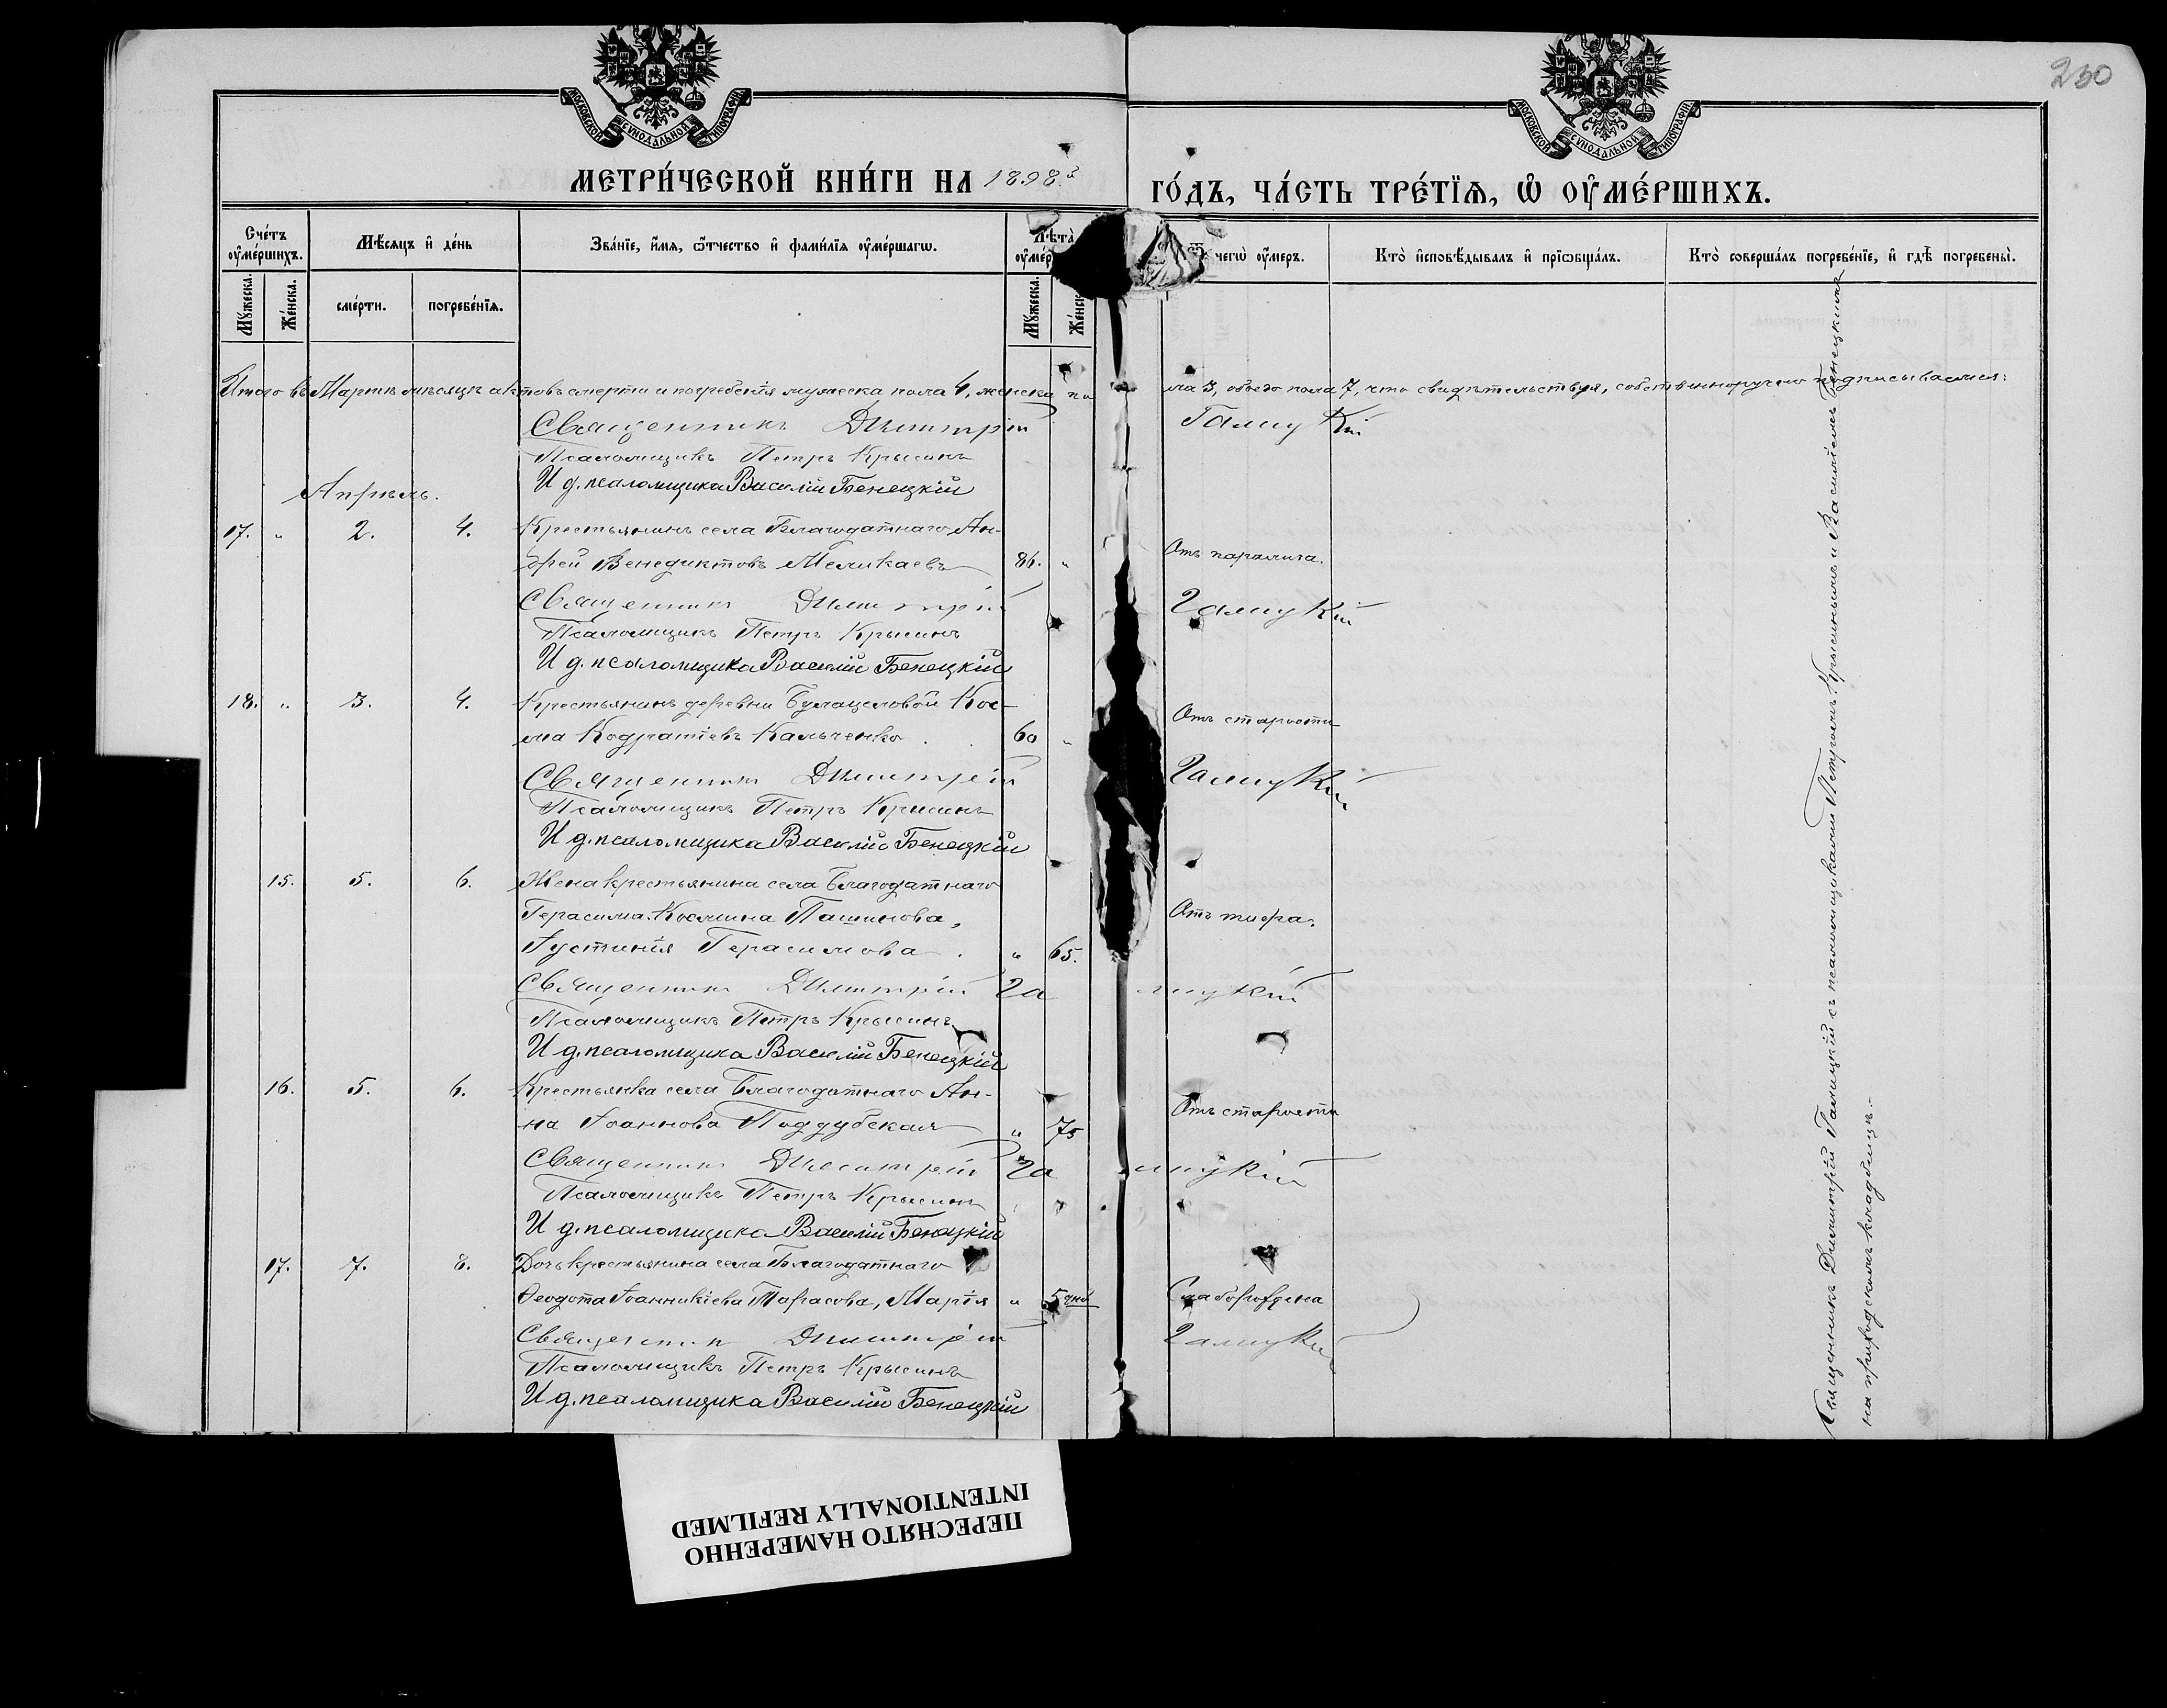 230
МОСКОВСКОЙ СУНОДАЛЬНОЙ ТИПОГРАФІИ
МОСКОВСКОЙ СУНОДАЛЬНОЙ ТИПОГРАФІИ
МЕТРИ́ЧЕСКОЙ КНИ́ГИ НА 1898й ГО́ДЪ, ЧА́СТЬ ТРЕ́ТЇѦ, Ѡ ОУМЕ́РШИХЪ.
Сче́тъ оумершихъ.
Мѣ́сяцъ и де́нь
Зва́нїе, и́мя, ѻ́тчество и фами́лїя оуме́ршагѡ.
Лѣта̀ оумер
Ѿ чегѡ̀ оу́меръ.
Кто̀ исповѣ́дывалъ и прїѡбща́лъ.
Кто̀ соверша́лъ погребе́нїе, и гдѣ̀ погребены̀.
Мꙋ́жеска.
Же́нска.
сме́рти.
погребе́нїя.
Мꙋ́жеска.
Же́нск
Итого въ Мартѣ мѣсяцѣ актовъ смерти и погребенія мужеска пола 4, женска пола 3, обоего пола 7, что свидѣтельствуя, собственноручно подписываемся:
Священникъ Димитрій Галицкій
Псаломщикъ Петръ Крысинъ
И д. псаломщика Василій Бенецкій
Апрѣль.
17. „ 2. 4. Крестьянинъ села Благодатнаго Ан-
дрей Венедиктовъ Меликаевъ 86. „ Отъ паралича.
Священникъ Димитрій Галицкій
Псаломщикъ Петръ Крысинъ
И д. псаломщика Василій Бенецкій
18. „ 3. 4. Крестьянинъ деревни Булацеловой Кос-
ма Кодратіевъ Кальченко. 60 „ Отъ старости
Священникъ Димитрій Галицкій
Псаломщикъ Петръ Крысинъ
И д. псаломщика Василій Бенецкій
15. 5. 6. Жена крестьянина села Благодатнаго
Герасима Космина Пашинова, Отъ тифа.
Іустинія Герасимова. „ 65.
Священникъ Димитрій Галицкій
Псаломщикъ Петръ Крысинъ
И д. псаломщика Василій Бенецкій
16. 5. 6. Крестьянка села Благодатнаго Ан-
на Іоаннова Поддубская „ 75 Отъ старости
Священникъ Димитрій Галицкій
Псаломщикъ Петръ Крысинъ
И д. псаломщика Василій Бенецкій
17. 7. 8. Дочь крестьянина села Благодатнаго
Ѳеодота Іоанникіева Тарасова, Марія „ 5 дней Слаборождена
Священникъ Димитрій Галицкій
Псаломщикъ Петръ Крысинъ
И д. псаломщика Василій Бенецкій
Священникъ Димитрій Галицкій съ псаломщиками Петромъ Крысинымъ и Василіемъ Бенецкимъ
на приходскомъ кладбищѣ.-
ПЕРЕСНЯТО НАМЕРЕННО
INTENTIONALLY REFILMED